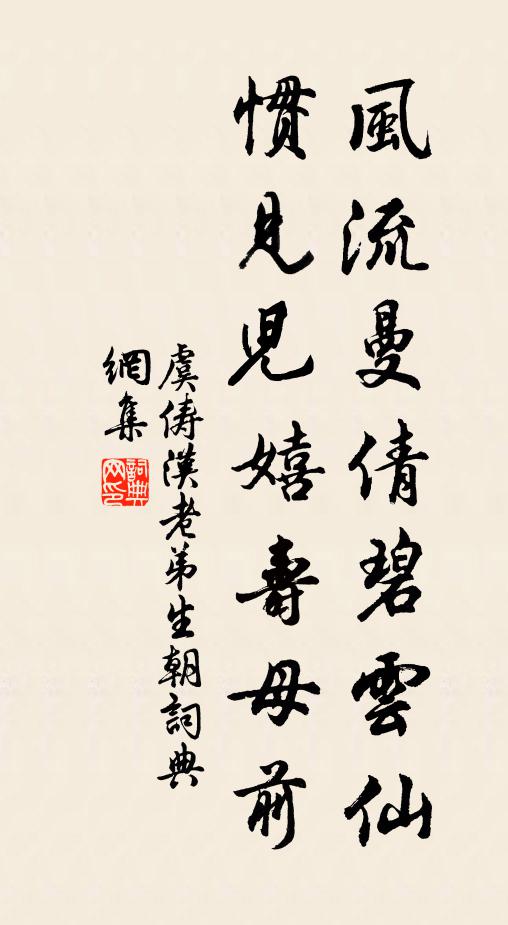 風流曼倩碧雲仙
慣見兒嬉壽母前
虞儔漢老弟生朝詞典
網集
詞典
网印